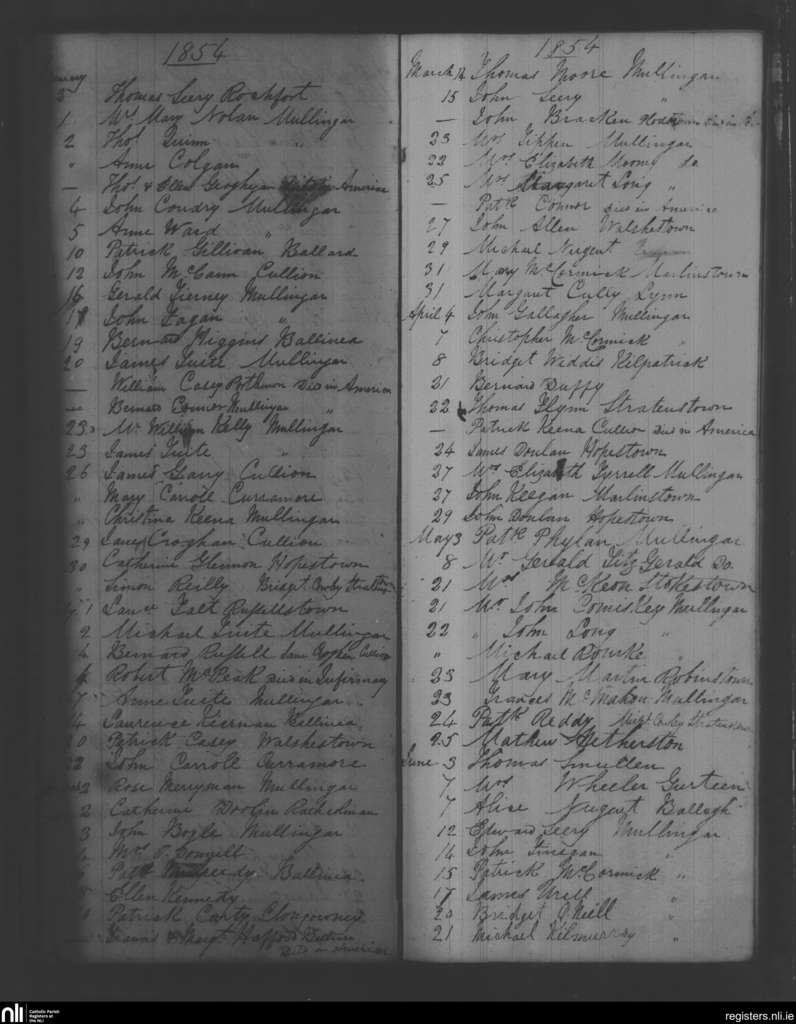 1854
3 Thomas Seery Rochfort
1 Mrs Mary Nolan Mullingar
2 Thos Quinn "
" Anne Colgan
— Thos & Ellen Geoghegan America
4 John Coudry Mullingar
5 Anne Ward "
10 Patrick Gillivan Ballard
12 John McCann Cullion
16 Gerald Tierney Mullingar
17 John Fagan "
19 Bernard Higgins Ballinea
20 James Tuite Mullingar
— William Casey Died in America
— Bernard Connor Mullingar "
23 Mr William Kelly Mullingar
23 James Tuite "
26 James Garry Cullion
" Mary Carroll Curramore
" Christina Keena Mullingar
29 James Croghan Cullion
30 Catherine Glennon Hopestown
" Simon Reilly Bridget
1 James Galt Russellstown
2 Michael Tuite Mullingar
4 Bernard Russell Cullion
4 Robert McPeak Died in Infirmary
7 Anne Tuite Mullingar
4 Laurence Kiernan Ballinea
Patrick Casey Walshestown
John Carroll Curramore
2 Rose Merryman Mullingar
2 Catherine Doolin
3 John Boyle Mullingar
Mrs
Patk Ballinea
Ellen Kennedy
Patrick Carty
Francis & Margt
Died in America
1854
March 14 Thomas Moore Mullingar
15 John Seery "
— John Bracken Died in
23 Mrs Mullingar
22 Mrs Elizabeth do
25 Mrs Margaret Long "
— Patk Connor Died in America
27 John Allen Walshestown
29 Michael Nugent
31 Mary McCormick Marlinstown
31 Margaret Lynn
April 4 John Gallagher Mullingar
7 Christopher McCormick "
8 Bridget Weddis Kilpatrick
21 Bernard Duffy
22 Thomas Flynn Stratenstown
— Patrick Keena Cullion Died in America
24 James Doulan Hopestown
27 Mrs Elizabeth Tyrrell Mullingar
27 John Keegan Marlinstown
29 John Doulan Hopestown
May 3 Patk Phylan Mullingar
8 Mr Gerald Fitz Gerald Do
21 Mrs McKeon Stokestown
21 Mr John Comiskey Mullingar
22 " John Long "
" Michael Rourke "
23 Mary Martin Robinstown
23 Frances McMahon Mullingar
24 Patk Reddy
25 Mathew Hetherston
June 3 Thomas Smullen
7 Mrs Wheeler Gurteen
7 Alice Nugent Ballagh
12 Edward Seery Mullingar
14 John Finegan "
15 Patrick McCormick "
17 James Urell "
20 Bridget O'Neill "
21 Michael Kilmurray "
nli
Catholic Parish
Registers at
the NLI
registers.nli.ie